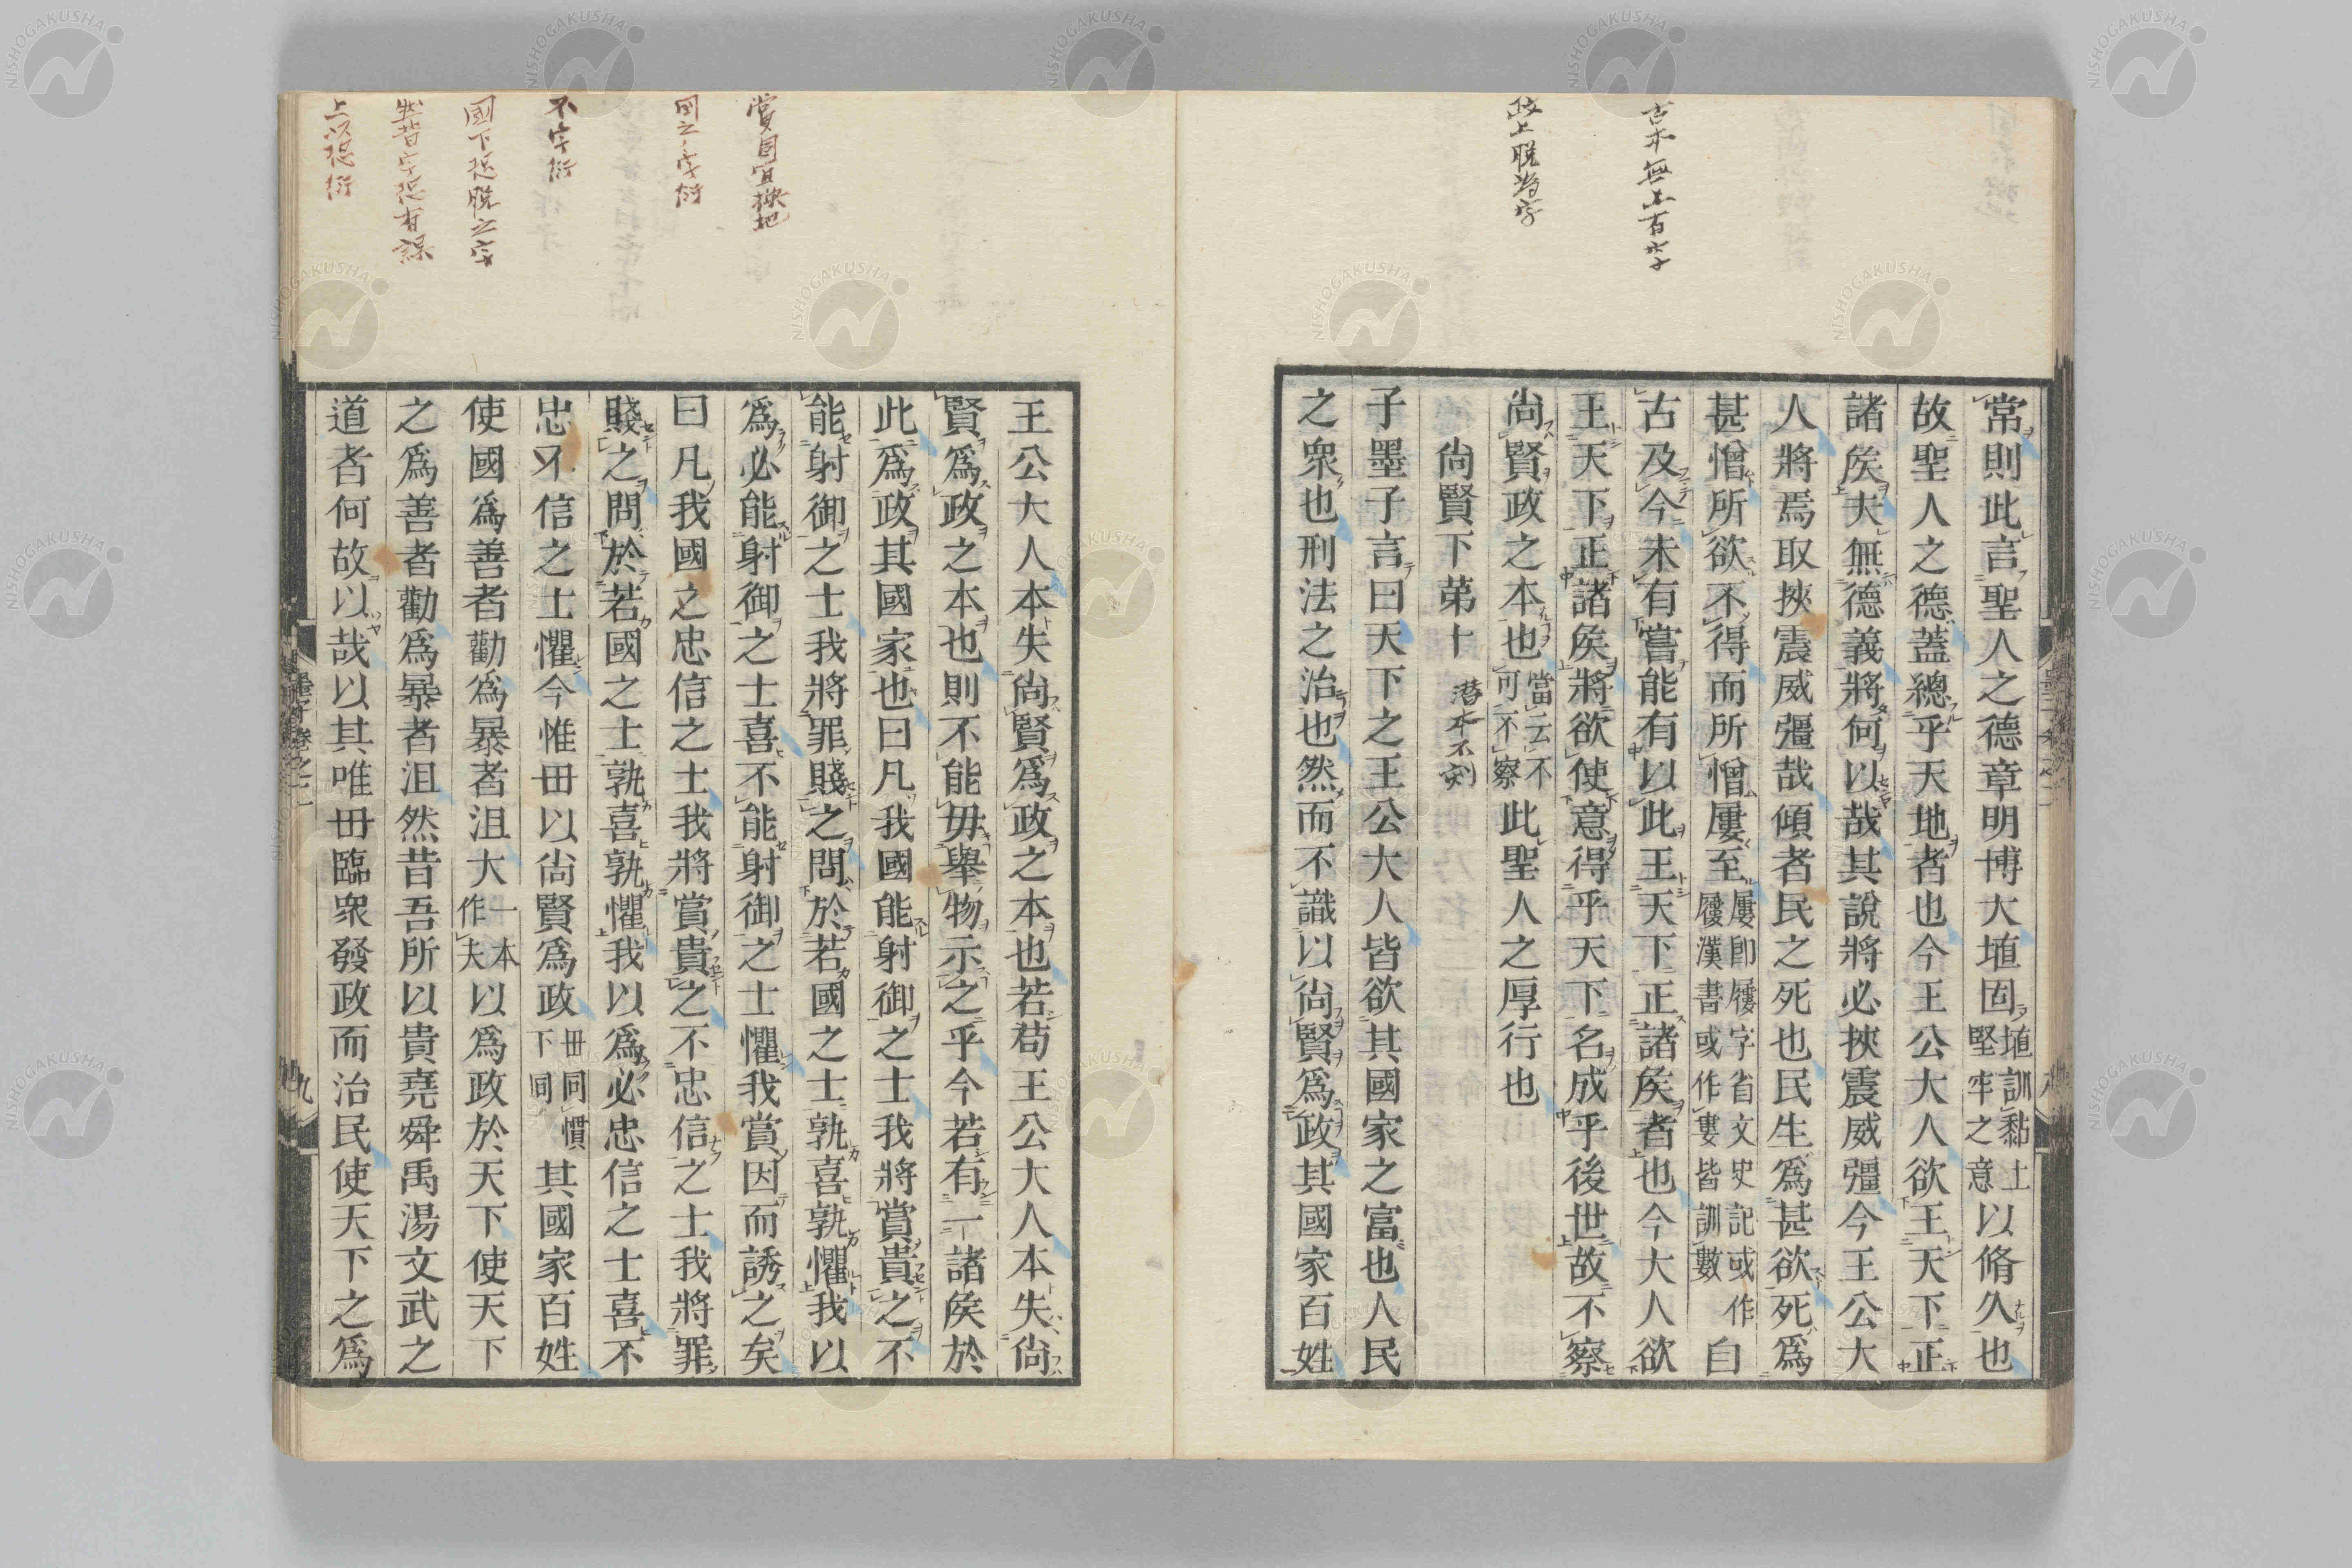 古本無土百六字
政上脱為字
常則此言聖人之德章明博大埴固埴訓黏土堅牢之意以脩久也
故聖人之德蓋總乎天地者也今王公大人欲王天下正
諸矦夫無德義將何以哉其說將必挾震威彊今王公大
人將焉取挾震威彊哉傾者民之死也民生爲甚欲死爲
甚憎所欲不得而所憎屢至屢卽屨字省文史記或作屨漢書或作婁皆訓數自
古及今未有嘗能有以此王天下正諸矦者也今大人欲
王天下正諸矦將欲使意得乎天下名成乎後世故不察
尚賢政之本也當云不可不察此聖人之厚行也
尚賢下第十
潜本不刻
子墨子言曰天下之王公大人皆欲其國家之富也人民
之衆也刑法之治也然而不識以尚賢爲政其國家百姓
賞目宜換地
国之字衍
不字衍
國下恐脱之字
然昔字恐有誤
上以恐衍
王公大人本失尚賢爲政之本也若苟王公大人本失尚
賢爲政之本也則不能毋舉物示之乎今若有一諸矦於
此爲政其國家也曰凡我國能射御之士我將賞貴之不
能射御之士我將罪賤之問於若國之士孰喜孰懼我以
爲必能射御之士喜不能射御之士懼我賞因而誘之矣
曰凡我國之忠信之士我將賞貴之不忠信之士我將罪
賤之問於若國之士孰喜孰懼我以爲必忠信之士喜不
忠不信之士懼今惟毌以尚賢爲政毌同慣下同其國家百姓
使國爲善者勸爲暴者沮大一本作夫以爲政於天下使天下
之爲善者勸爲暴者沮然昔吾所以貴堯舜禹湯文武之
道者何故以哉以其唯毌臨衆發政而治民使天下之爲
墨子卷之二
九